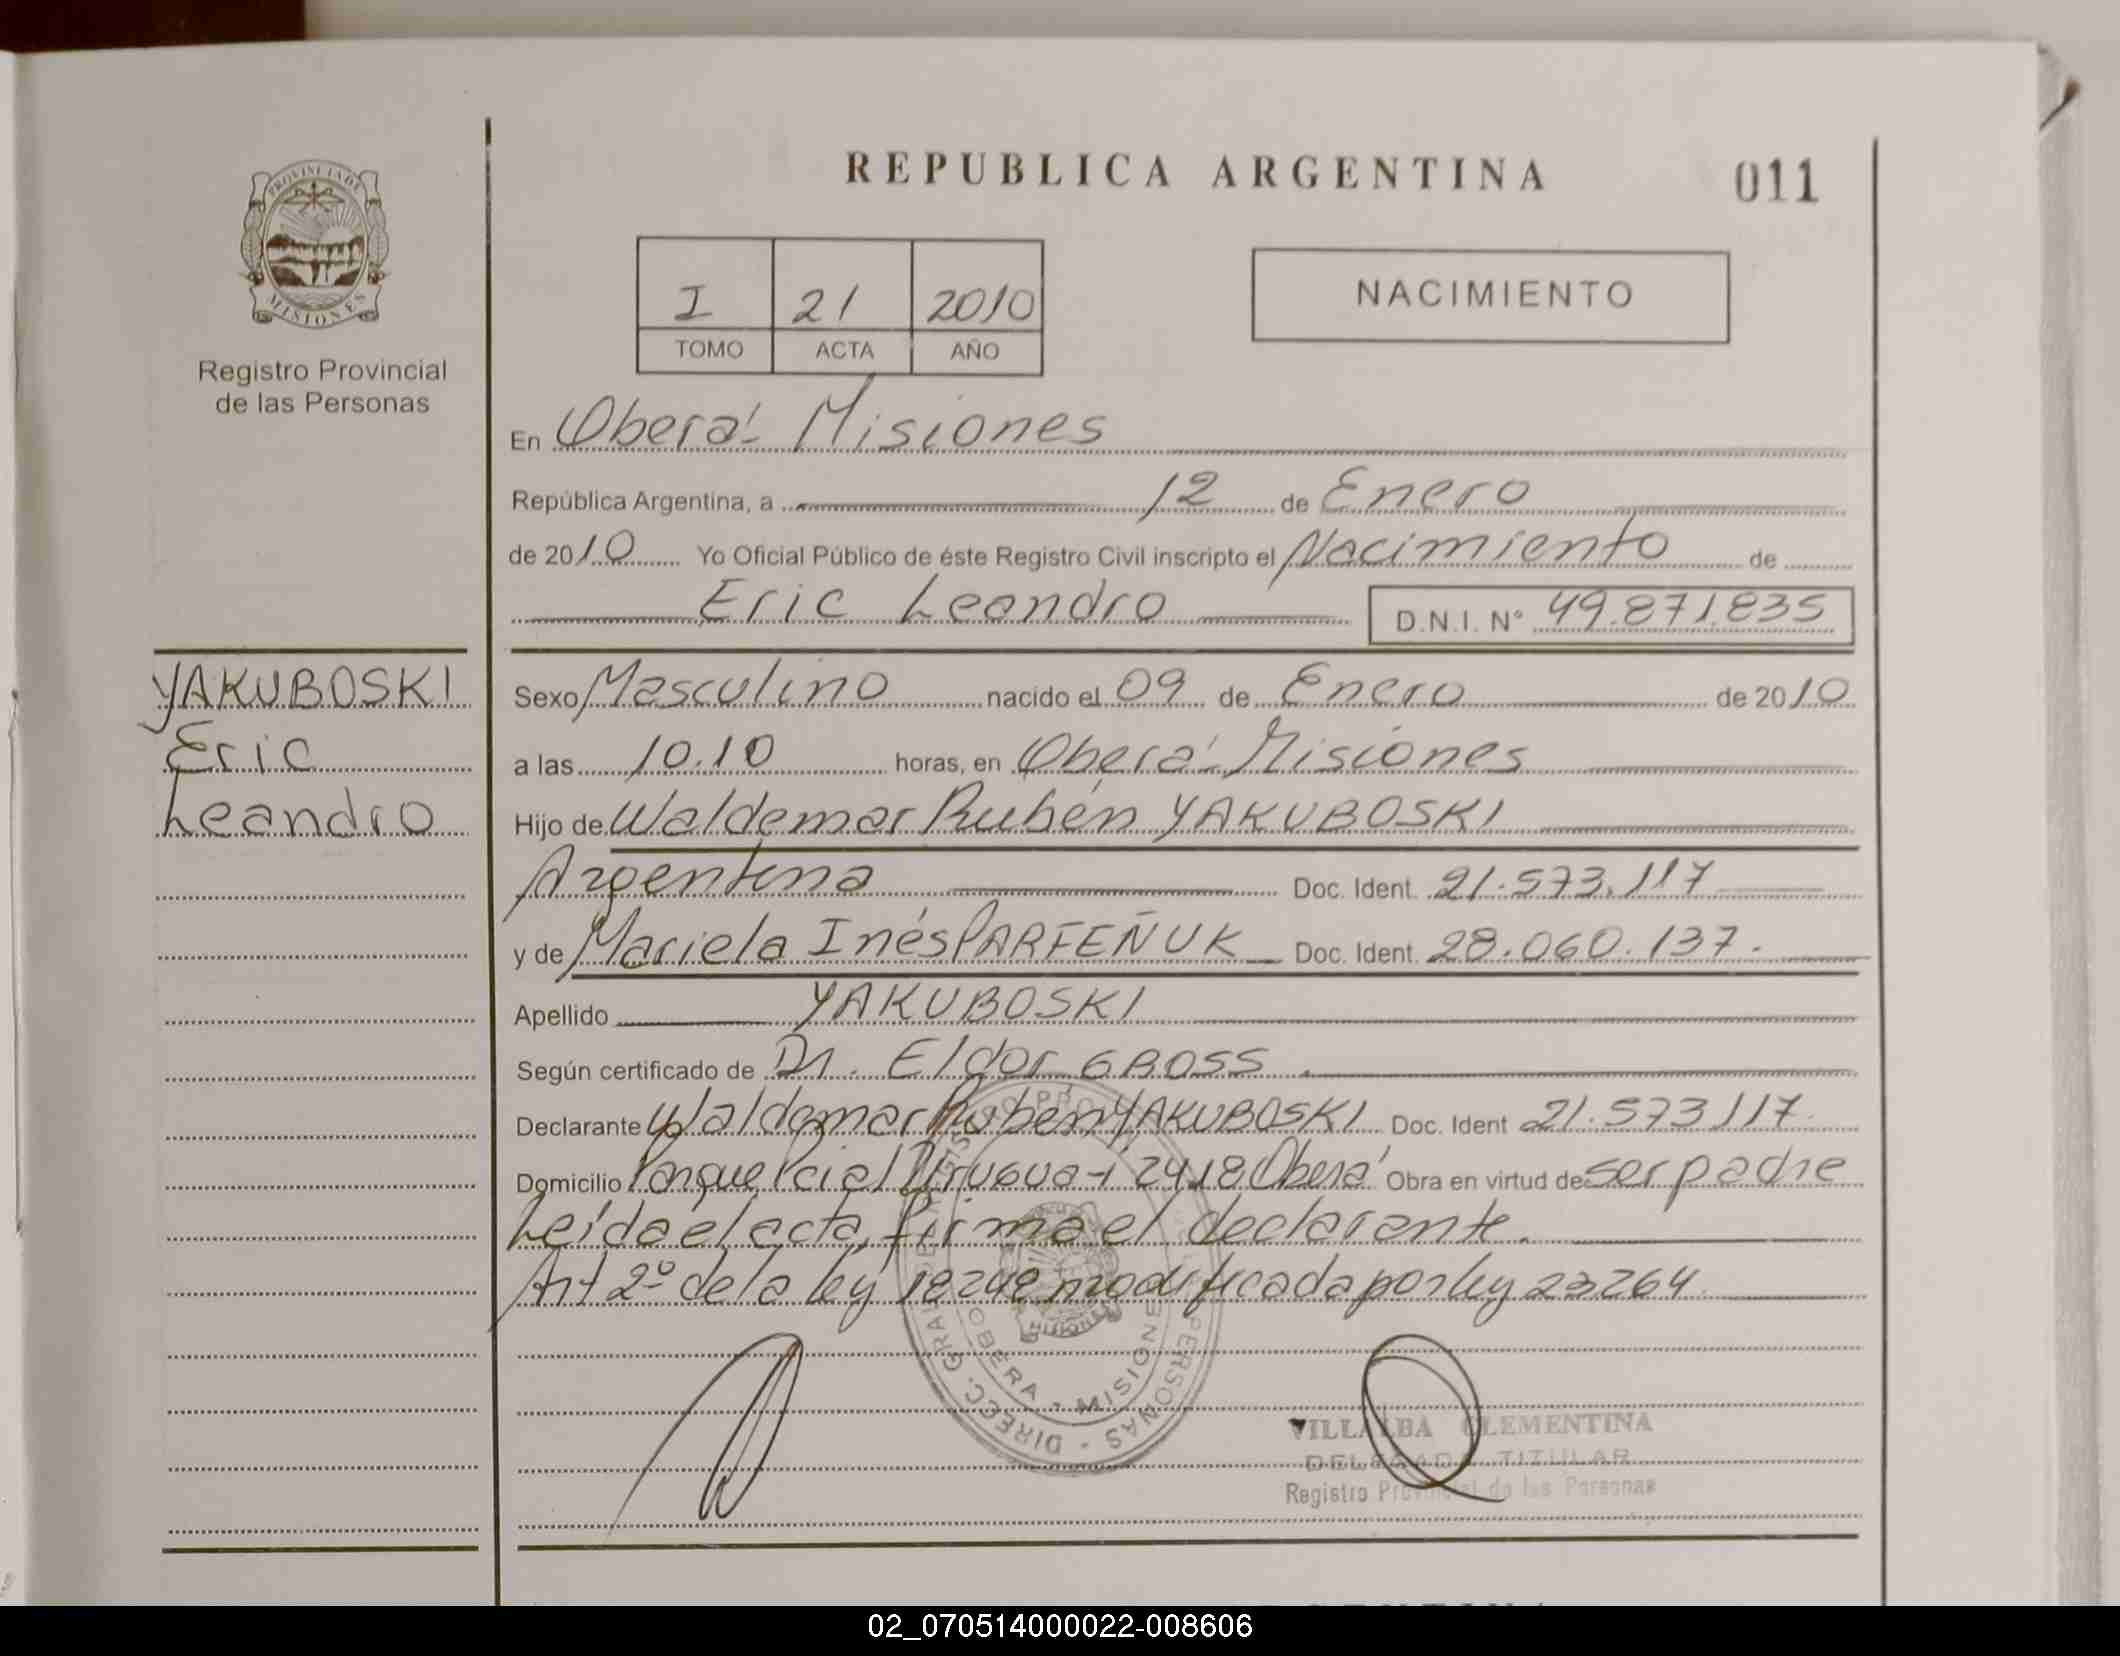 REPUBLICA ARGENTINA
011
PROVINCIA DE
MISIONES
Registro Provincial
de las Personas
I 21 2010
TOMO ACTA AÑO
NACIMIENTO
En Oberá - Misiones
República Argentina, a 12 de Enero
de 2010 Yo Oficial Público de éste Registro Civil inscripto el Nacimiento de
Eric Leandro D.N.I. N° 49.871.835
YAKUBOSKI
Eric
Leandro
Sexo Masculino nacido el 09 de Enero de 2010
a las 10.10 horas, en Oberá - Misiones
Hijo de Waldemar Rubén YAKUBOSKI
Argentina Doc. Ident. 21.573.117
y de Mariela Inés PARFEÑUK Doc. Ident. 28.060.137.
Apellido YAKUBOSKI
Según certificado de Dr. Eldor GROSS.
Declarante Waldemar Rubén YAKUBOSKI Doc. Ident 21.573117.
Domicilio Parque Pcial Urugua-í 2418 Oberá Obra en virtud de ser padre
Leída el acta, firma el declarante.
Art 2º de la ley 18248 modificada por ley 23264
OBERA - MISIONES
VILLALBA CLEMENTINA
DELEGADA TITULAR
Registro Provincial de las Personas
02_070514000022-008606